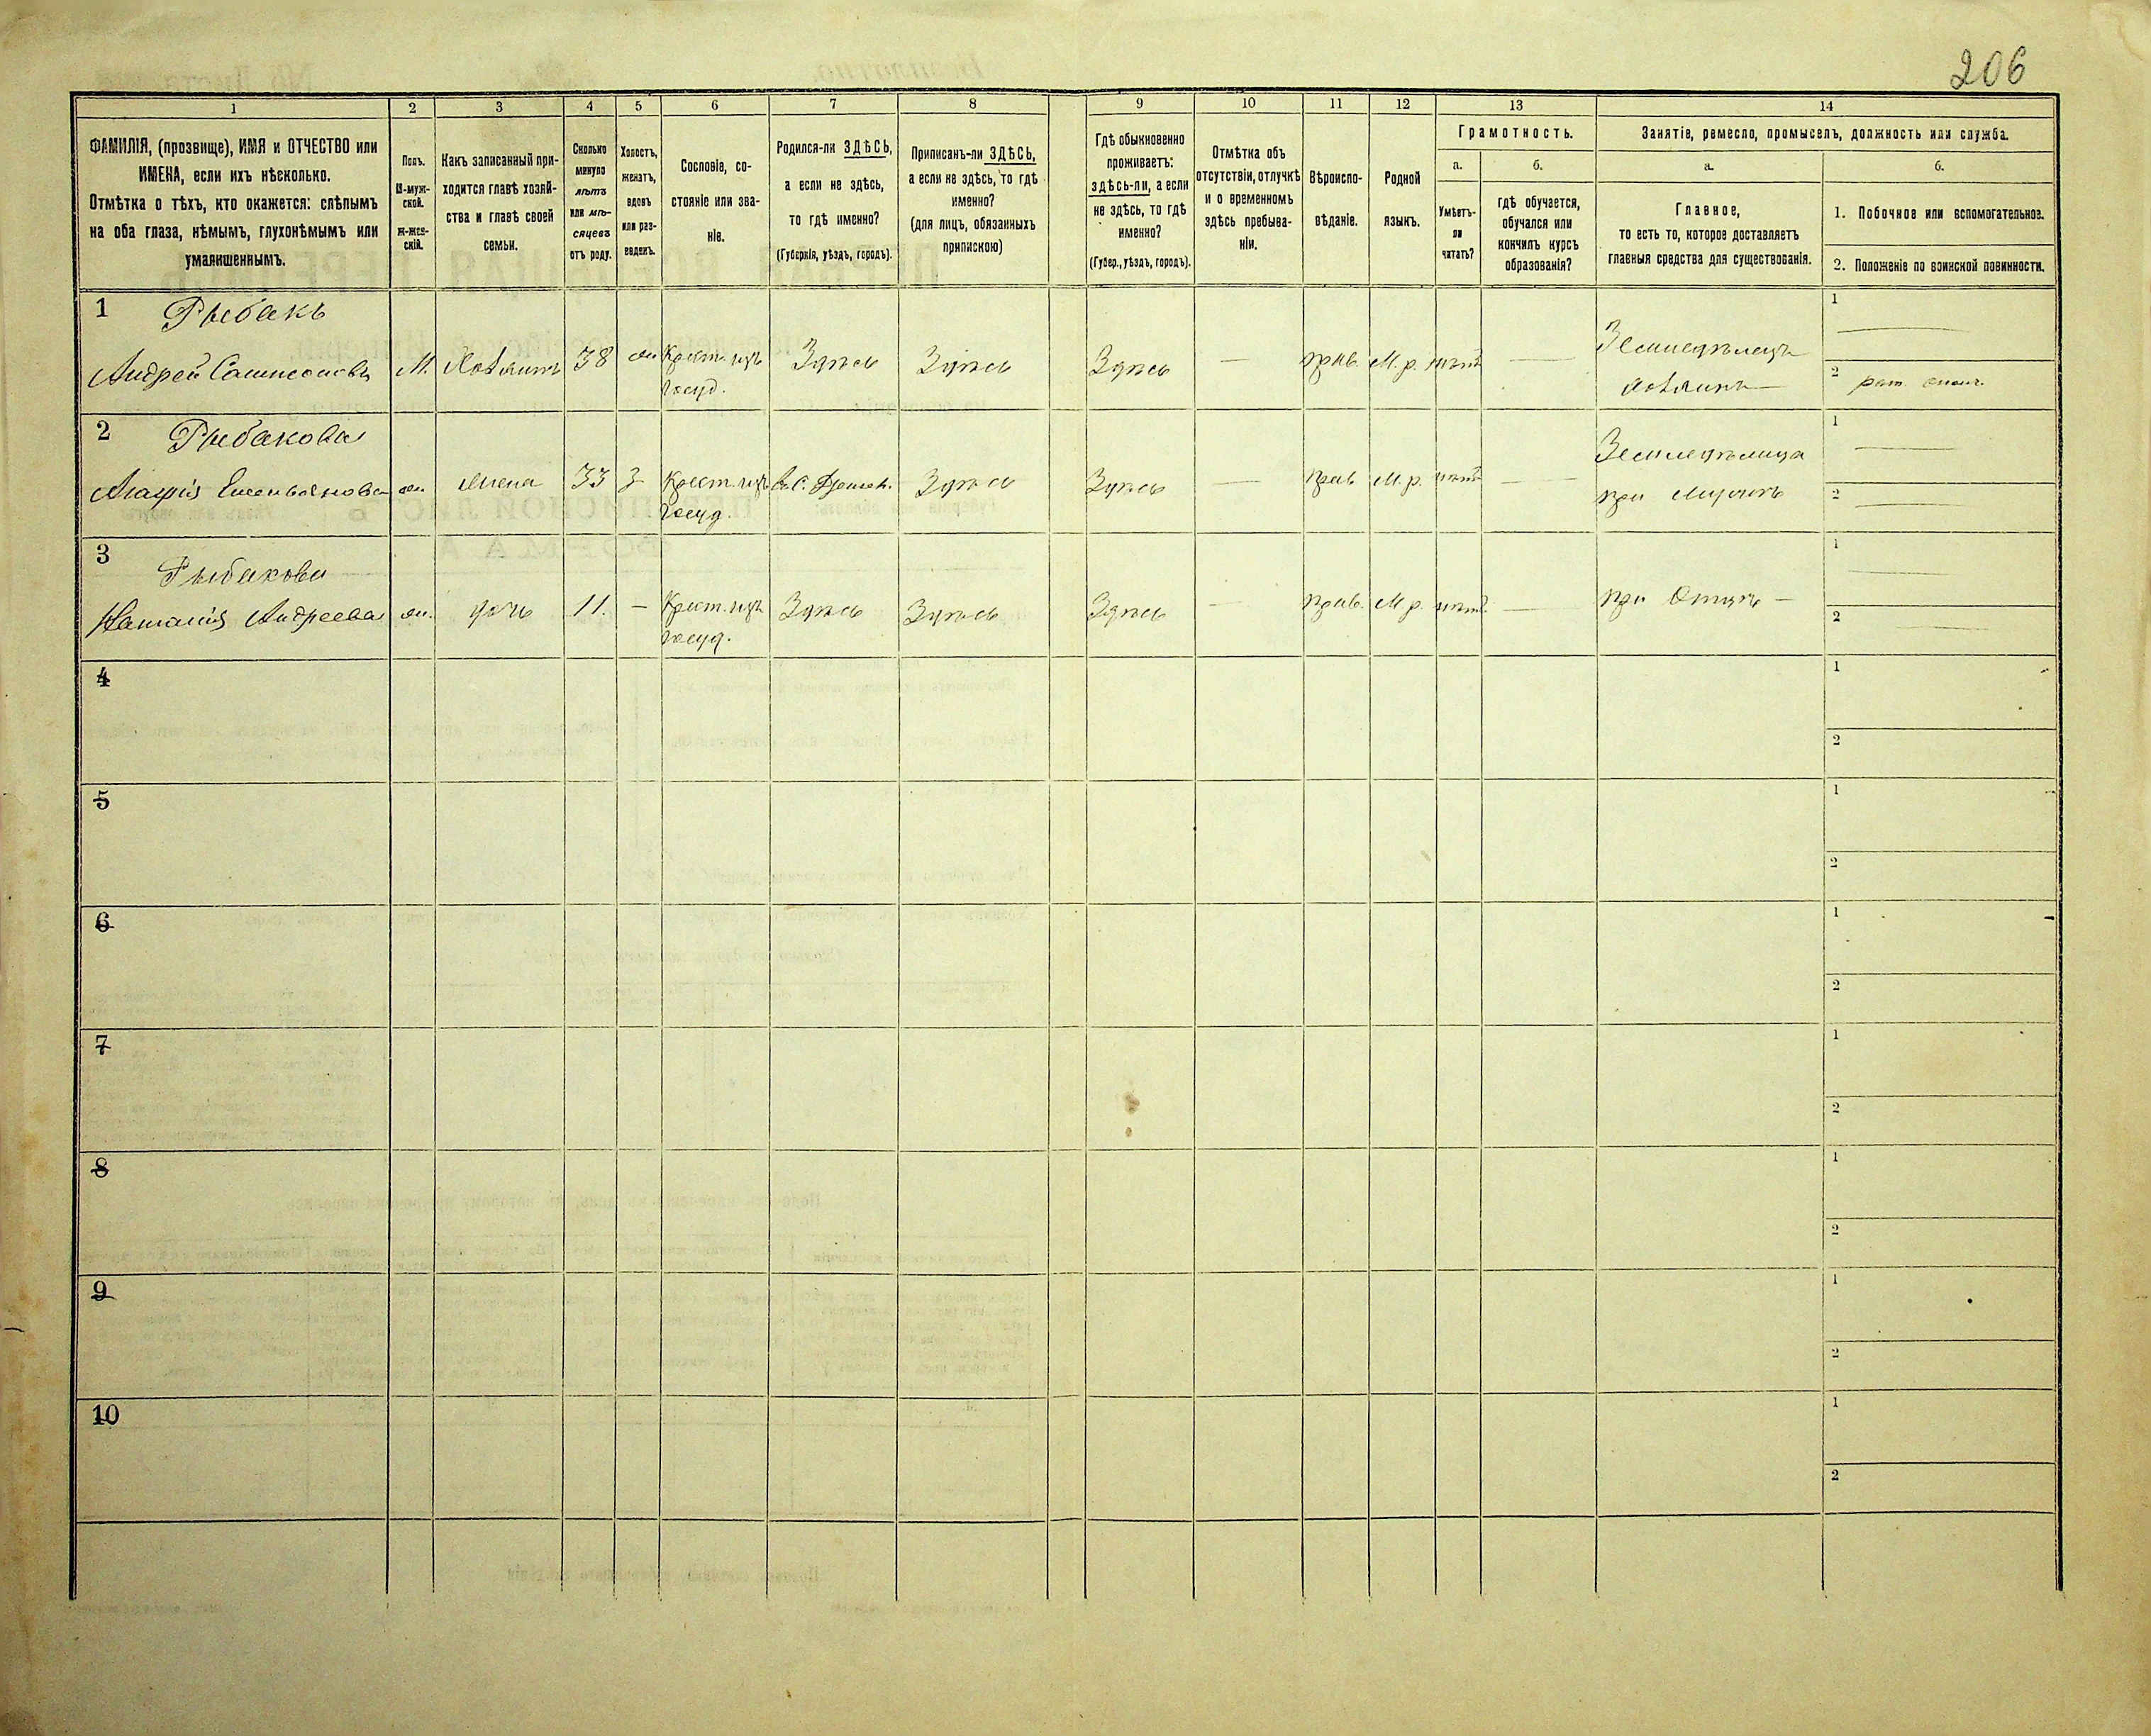 206
1
2
3
4
5
6
7
8
9
10
11
12
13
14
ФАМИЛІЯ, (прозвище), ИМЯ и ОТЧЕСТВО или
ИМЕНА, если ихъ нѣсколько.
Отмѣтка о тѣхъ, кто окажется: слѣпымъ
на оба глаза, нѣмымъ, глухонѣмымъ или
умалишеннымъ.
Полъ.
М-муж-
ской.
Ж-жен-
скій.
Какъ записанный при-
ходится главѣ хозяй-
ства и главѣ своей
семьи.
Сколько
минуло
лѣтъ
или мѣ-
сяцевъ
отъ роду.
Холостъ,
женатъ,
вдовъ
или раз-
веденъ.
Сословіе, со-
стояніе или зва-
ніе.
Родился-ли ЗДѢСЬ,
а если не здѣсь,
то гдѣ именно?
(Губернія, уѣздъ, городъ).
Приписанъ-ли ЗДѢСЬ,
а если не здѣсь, то гдѣ
именно?
(для лицъ, обязанныхъ
припискою)
Гдѣ обыкновенно
проживаетъ:
здѣсь-ли, а если
не здѣсь, то гдѣ
именно?
(Губер., уѣздъ, городъ).
Отмѣтка объ
отсутствіи, отлучкѣ
и о временномъ
здѣсь пребыва-
ніи.
Вѣроиспо-
вѣданіе.
Родной
языкъ.
Грамотность.
а.
Умѣетъ-
ли
читать?
б.
гдѣ обучается,
обучался или
кончилъ курсъ
образованія?
Занятіе, ремесло, промыселъ, должность или служба.
а.
Главное,
то есть то, которое доставляетъ
главныя средства для существованія.
б.
1. Побочное или вспомогательное.
2. Положеніе по воинской повинности.
1 Рыбакъ
Андрей Самисоновъ М. Хозяинъ 38 ж Крест. изъ Здѣсь Здѣсь Здѣсь — прав. М. р. нѣтъ — Земледѣлецъ 1 —
госуд. хозяинъ — 2 рат. ополч.
2 Рыбакова
Агафія Емельянова ж. жена 33 З Крест. изъ Здѣсь Здѣсь — прав М р. нѣтъ — Земледѣлица 1 —
госуд. при мужѣ 2 —
3 Рыбакова
Наталія Андреева ж. дочь 11. — Крест. изъ Здѣсь Здѣсь Здѣсь — прав. М р. нѣтъ. — при отцѣ — 1 —
госуд. 2 —
4 1
2
5 1
2
6 1
2
7 1
2
8 1
2
9 1
2
10 1
2